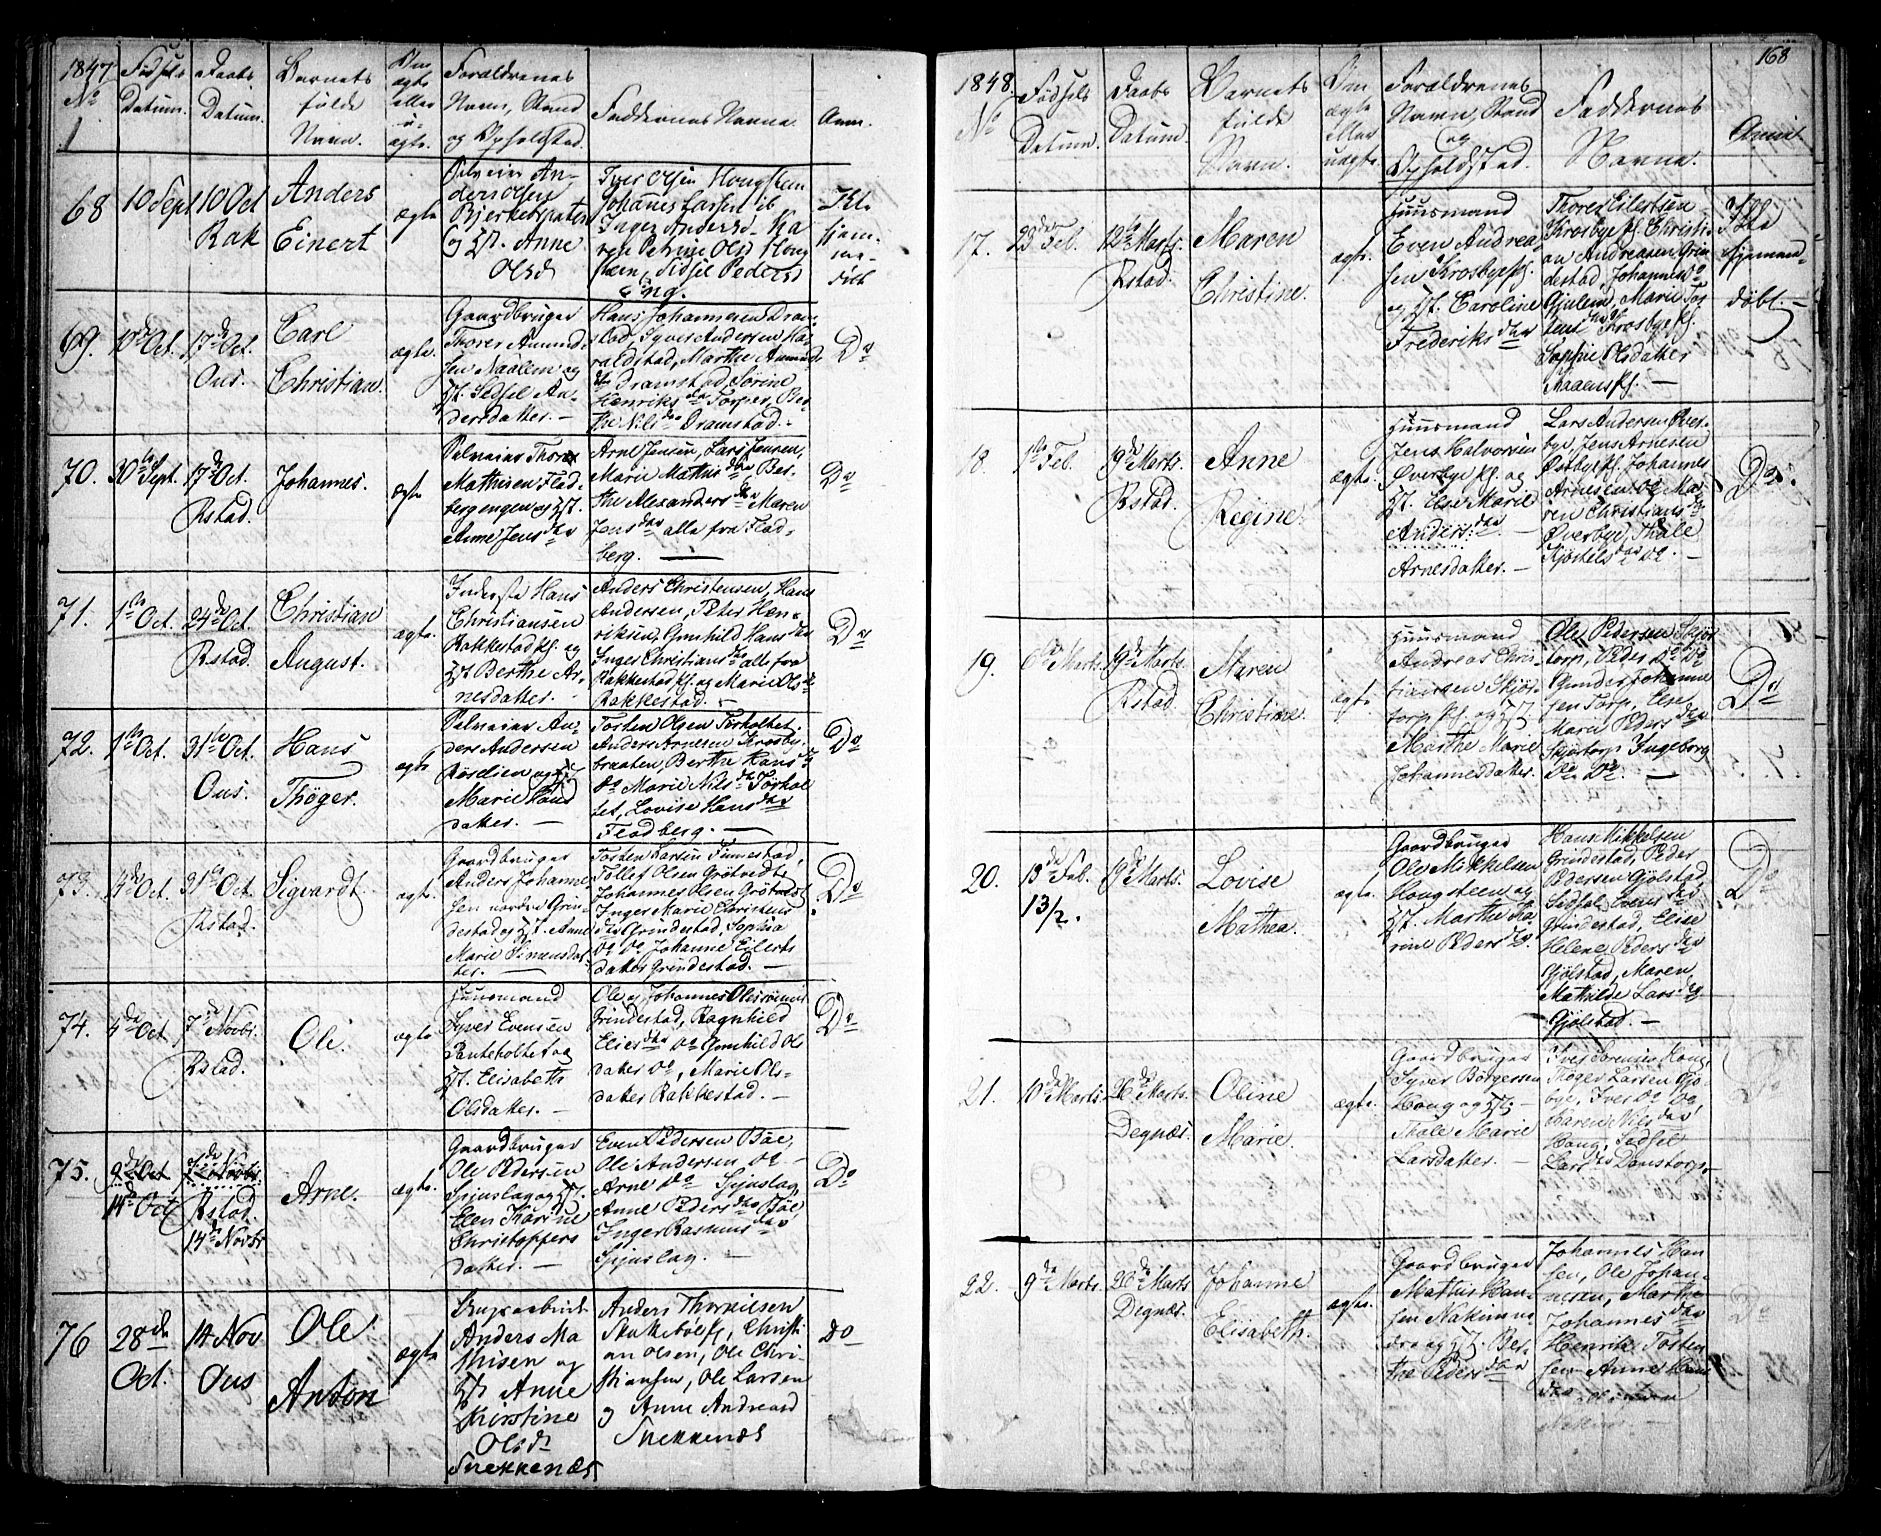 1847
No
Fødsels
Datum.
Daabs
Datum.
Barnets
fulde
Navn.
Om
ægte
eller
u-
ægte.
Forældrenes
Navn, Stand
og Opholdsted.
Faddernes Navne.
Anm.
68
10 Sept
10 Oct
Rak
Anders
Einert
ægte
Anders Olsen
og Hst. Anne
Olsd
Iver Olsen Hougsteen
Johannes Larsen ib
Inger Andersd. Ka
ren Petrine Olsd Houg
steen, Sidsel Pedersd
Eng.
Ikke
hjem-
me-
døbt
69.
10de Oct.
17de Oct.
Ous.
Carl
Christian.
ægte.
Gaardbruger
Thorer Amund-
sen Naalem og
Hst. Sedsel An-
dersdatter. —
Hans Johannesen Dram-
stad, Syver Andersen Ha-
raldstad, Marthe Amunds
dtr Dramstad, Sørine
Henriksda Torper, Ber-
the Nilsda Dramstad. -
Do
70.
30te Sept.
17de Oct.
Rstad.
Johannes.
ægte
Selveier Thorer
Mathisen Flad-
bergengen og Hst.
Anne Jensdtr
Arne Jensen, Lars Jensen,
Marie Mathisdtr Ber-
the Alexandersdtr Maren
Jensdtr alle fra Flad-
berg. —
Do
71.
1ste Oct.
24de Oct.
Rstad.
Christian
August.
ægte.
Inderste Hans
Christiansen
Rakkestad Pl. og
Hst. Berthe Ar-
nesdatter. -
Anders Christensen, Hans
Andersen, Peter Hen-
riksen, Gunhild Hansdtr
Inger Christiansdtr alle fra
Rakkestad Pl. og Marie Olsdr
Rakkestad. -
Do
72.
1ste Oct.
31te Oct.
Ous.
Hans
Thøger.
ægte
Selveier An-
ders Andersen
og Hst.
Marie
datter. —
Tosten Olsen Torholtet.
Anders Arnesen Krosby-
braaten, Berthe Hansdr
Do Marie Nilsdtr Torhol
tet, Lovise Hansdtr
Fladberg. —
Do
73.
4de Oct.
31te Oct.
Rstad.
Sigvardt.
ægte.
Gaardbruger
Anders Johanne
sen nordre Grin-
destad og Hst. Anne
Marie Simensdat-
ter. —
Tosten Larsen Finnestad,
Tollef Olsen Grøtvedt
Johannes Olsen Grøtvedt
Inger Marie Christens
dtr Grindestad, Sophia
Do Do Johanne Eilerts
datter Grindestad. —
Do
74.
4de Oct
7de Novbr.
Rstad.
Ole.
ægte
Huusmand
Syver Evensen
Danteholtet og
Hst. Elisabeth
Olsdatter. —
Ole og Johannes Olessønner
Grindestad, Ragnhild
Eliesdtr Do Gunhild Ols
datter Do, Marie Ols-
datter Rakkestad. —
Do
75.
9de Oct
14de Oct
7de Novbr.
Rstad.
14de Novbr
Arne.
ægte.
Gaardbruger
Ole Pedersen
Spjuslag og Hst.
Elen Karine
Christophers
datter. —
Even Pedersen Bøe,
Ole Andersen Do —
Arne Do Spjuslag,
Anne Pedersdtr Bøe,
Inger Rasmusdtr
Spjuslag. —
Do
76
28de
Oct.
14 Nov
Ous
Ole
Anton
ægte
Anders Ma
thisen og
Hst Anne
Kirstine
Olsdr
Snekkenæs
Anders Thorkilsen
Skakebøl, Christi
an Olsen, Ole Chri-
stiansen, Ole Larsen
og Anne Andreasd
Snekkenæs
Do
168
1848.
No
Fødsels
Datum.
Daabs
Datum.
Barnets
fulde
Navn.
Om
ægte
eller
uægte.
Forældrenes
Navn, Stand
og
Opholdsted.
Faddernes
Navne.
Anm.
17.
23de Feb.
12te Marts.
Rstad.
Maren
Christine.
ægte.
Huusmand
Even Andrea
sen Krosbye Pl.
og Hst. Caroline
Frederiksdtr
Thorer Eilertsen
Krosbye Pl. Christi-
an Andreasen Grin
destad, Johannes Do
Gjulem, Marie Tos
tensdtr Krosbye Pl.
Sophie Olsdatter
Aaaens Pl. —
Ikke
hjemme-
døbt. —
18.
1ste Feb.
19de Marts.
Rstad.
Anne
Regine.
ægte.
Huusmand
Jens Halvorsen
Øverbye Pl. og
Hst. Else Marie
Andersdtr. —
Arnesdatter. —
Lars Andersen Øver-
bye, Jens Arnesen
Østbye Pl. Johannes
Arnesen Do Ma-
ren Christiansdtr
Øverbye, Thale
Kjøstelsdtr Do. —
Do.
19.
6te Marts.
19de Marts.
Rstad.
Maren
Christine.
ægte.
Huusmand
Andreas Chris-
tiansen Skjør-
torp Pl. og Hst
Marthe Marie
Johannesdatter.
Ole Pedersen Skjør
torp, Peder Do Do
Gunder Johanne
sen Torp, Else
Marie Pedersdtr
Skjøtorp Ingeborg
Do Do. —
Do
20.
13de Feb.
13/2.
19de Marts.
Lovise
Mathea.
ægte.
Gaardbruger
Ole Mikkelsen
Hougsteen og
Hst. Marthe Ka
rine Pedersdtr.
Hans Mikkelsen
Grindestad, Peder
Pedersen Gjølstad,
Sedsel Evensdtr
Grindestad, Elise
Helene Pedersdtr
Gjølstad, Maren
Mathilde Larsdtr
Gjølstad. —
Do
21.
10de Marts.
26de Marts.
Degnæs.
Oline
Marie.
ægte.
Gaardbruger
Syver Børgersen
Houg og Hst.
Thale Marie
Larsdatter. —
Iver Sørensen Houg,
Thøger Larsen Gjø-
bye, Iver Do Do
Karen Nilsdtr
Houg, Sedsel
Larsdtr Danstorp. —
Do
22.
9de Marts.
26de Marts
Degnæs.
Johanne
Elisabeth.
ægte.
Gaardbruger
Mathis Han-
sen Nakim
og Hst. Ber-
the Pedersdtr
Johannes Han-
sen, Ole Johan-
nesen, Marthe
Johannesdtr
Henrik Tosten
sen Anne Hans
dtr
Do